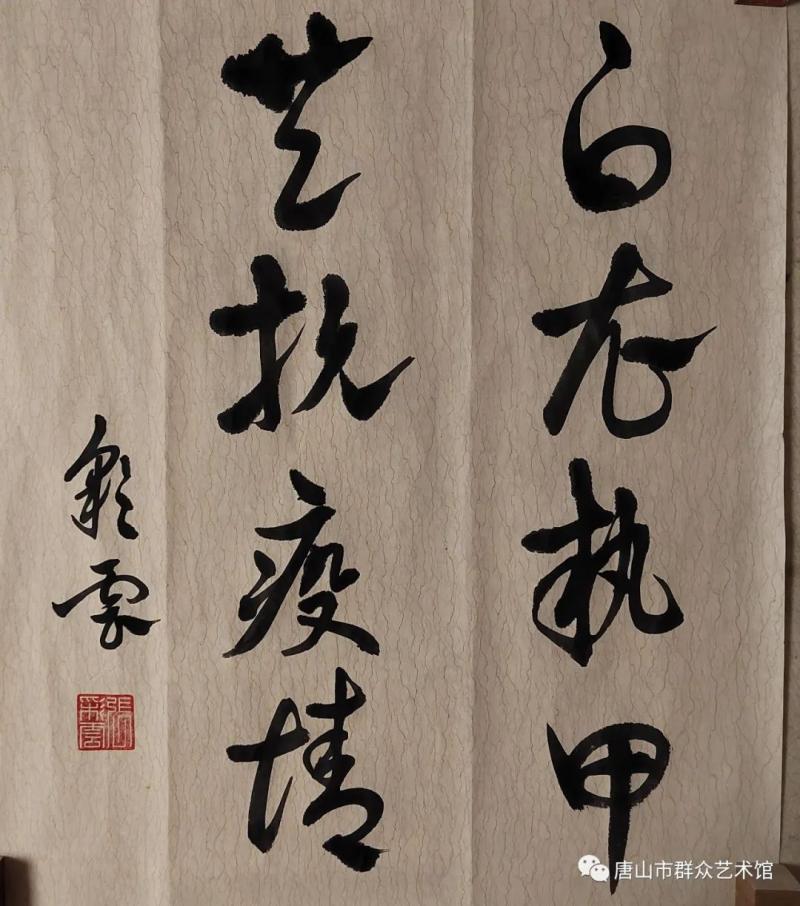 白衣执甲
共抗疫情
彩雲
唐山市群众艺术馆